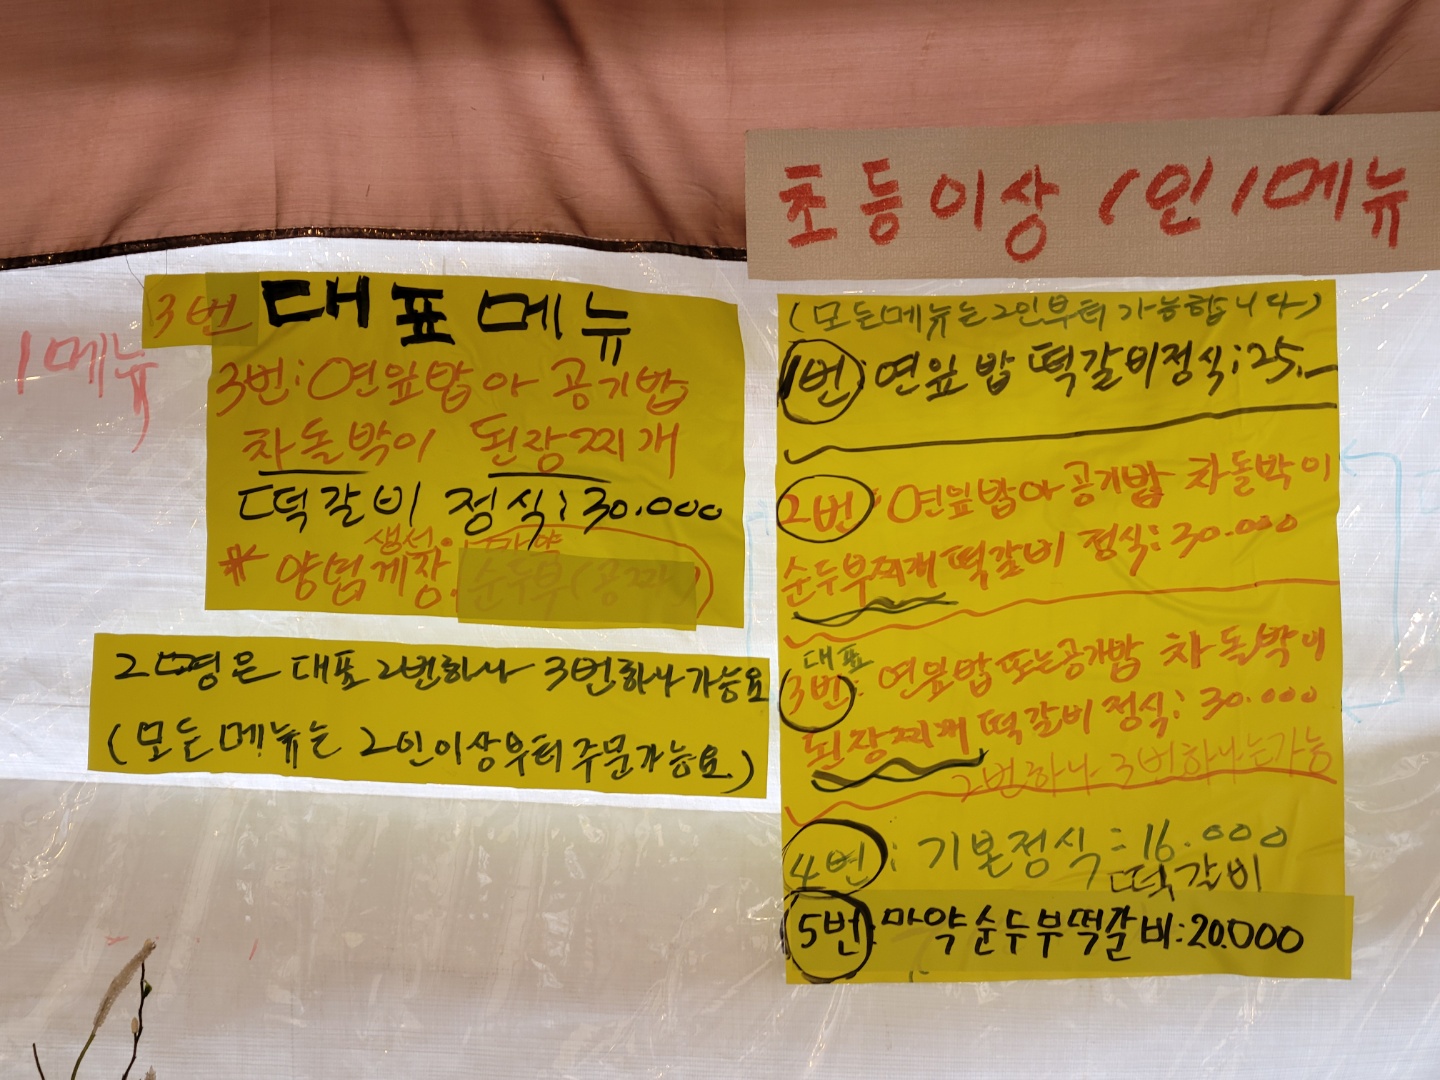 초등이상 1인 1메뉴
1메뉴
3번 대표메뉴
3번: 연잎밥 아 공기밥
차돌박이 된장찌개
떡갈비 정식: 30.000
생선
* 양념게장. 순두부(공짜)
2명은 대표 2번하나 3번하나가능요
(모든메뉴는 2인이상부터주문가능요)
(모든메뉴는2인부터가능합니다)
1번: 연잎밥 떡갈비정식: 25.
2번: 연잎밥아공기밥 차돌박이
순두부찌개 떡갈비 정식: 30.000
대표
3번: 연잎밥또는공기밥 차돌박이
된장찌개 떡갈비정식: 30.000
2번하나 3번하나는가능
4번: 기본정식 = 16.000
떡갈비
5번: 마약순두부떡갈비:20.000